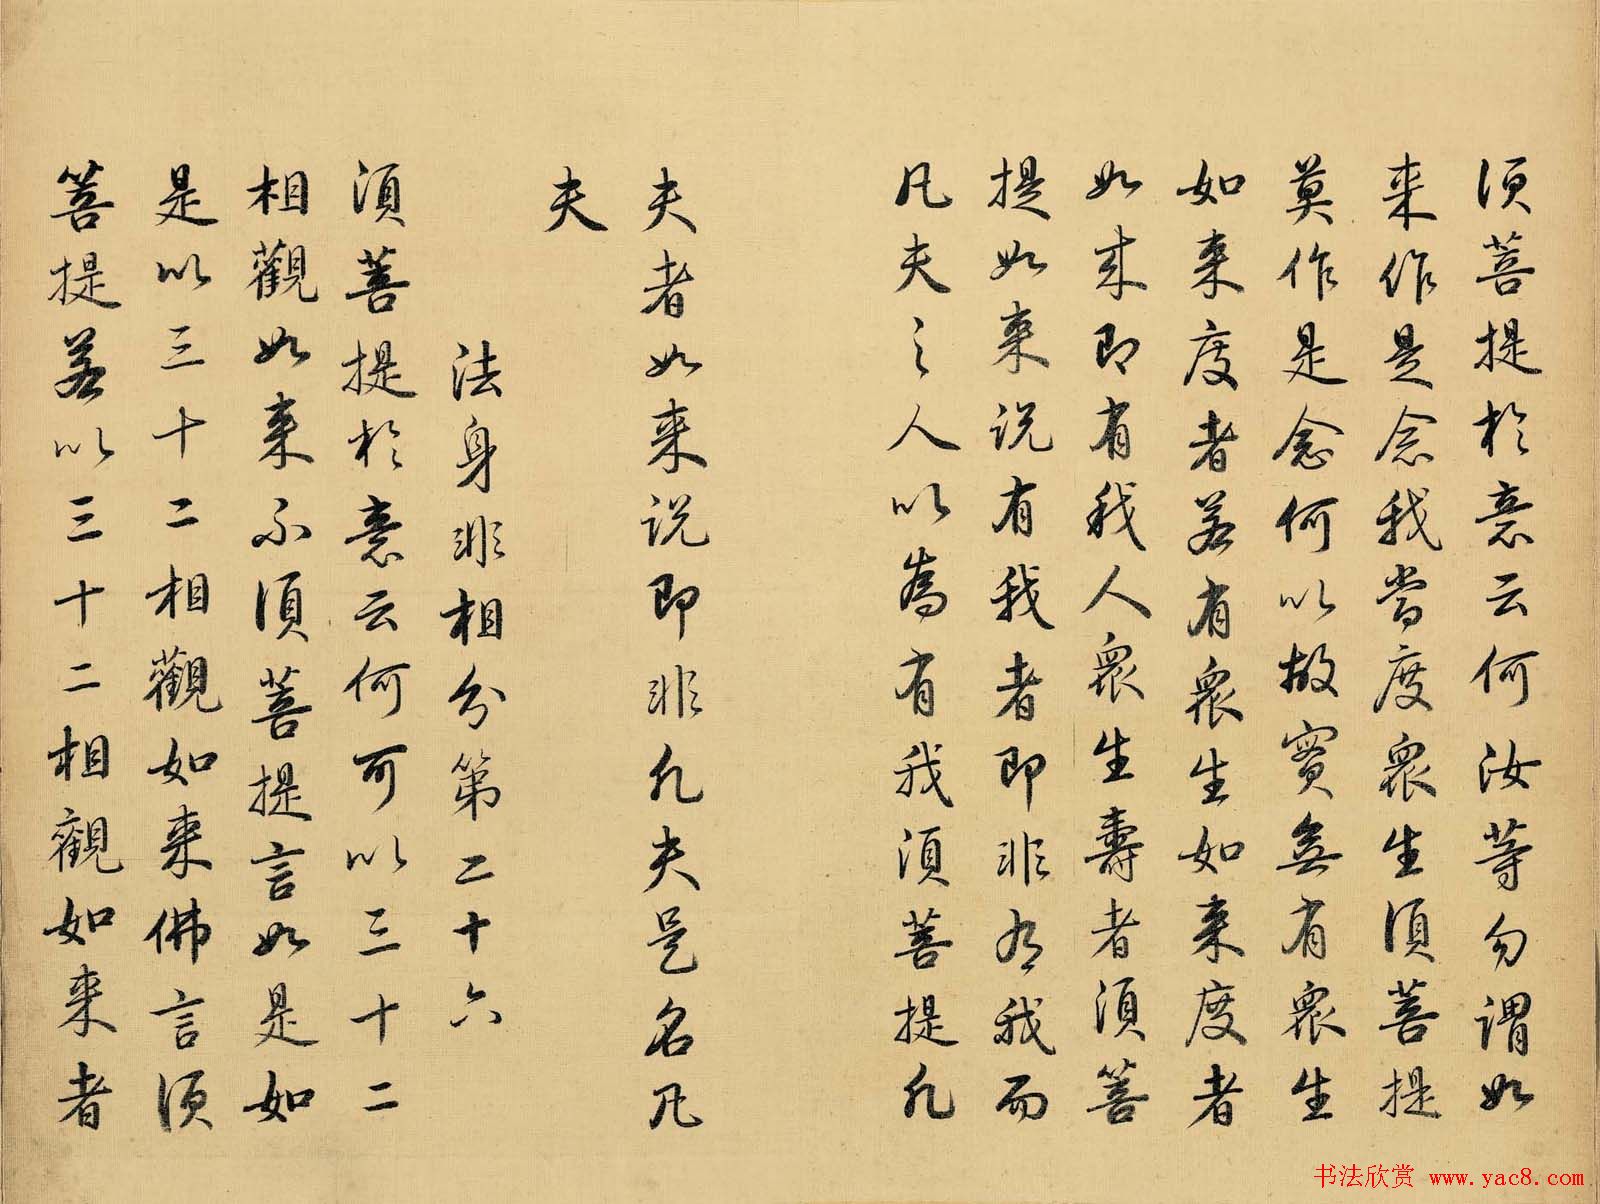 須菩提於意云何汝等勿謂如
来作是念我當度衆生須菩提
莫作是念何以故實無有衆生
如来度者若有衆生如来度者
如来即有我人衆生壽者須菩
提如来说有我者即非有我而
凡夫之人以為有我須菩提凡
夫者如来说即非凡夫是名凡
夫
法身非相分第二十六
須菩提於意云何可以三十二
相觀如来不須菩提言如是如
是以三十二相觀如来佛言須
菩提若以三十二相觀如来者
书法欣赏 www.yac8.com